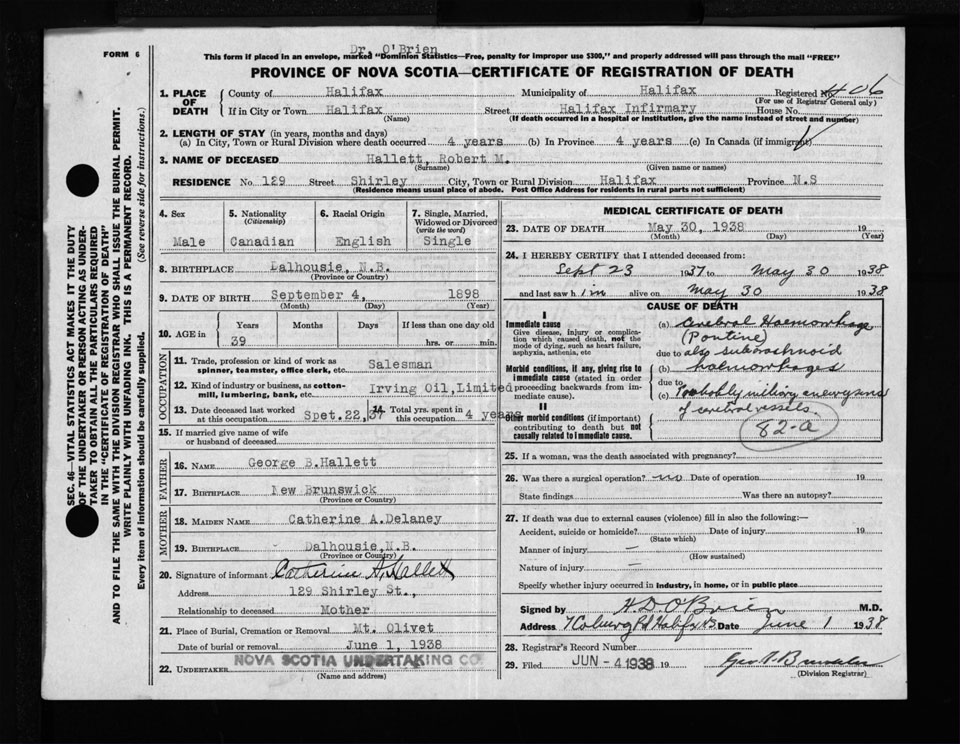 FORM 6
Dr. O'Brien
This form if placed in an envelope, marked "Dominion Statistics—Free, penalty for improper use $300," and properly addressed will pass through the mail "FREE"
PROVINCE OF NOVA SCOTIA—CERTIFICATE OF REGISTRATION OF DEATH
SEC. 46—VITAL STATISTICS ACT MAKES IT THE DUTY
OF THE UNDERTAKER OR PERSON ACTING AS UNDER-
TAKER TO OBTAIN ALL THE PARTICULARS REQUIRED
IN THE "CERTIFICATE OF REGISTRATION OF DEATH"
AND TO FILE THE SAME WITH THE DIVISION REGISTRAR WHO SHALL ISSUE THE BURIAL PERMIT.
WRITE PLAINLY WITH UNFADING INK. THIS IS A PERMANENT RECORD.
Every item of information should be carefully supplied. (See reverse side for instructions.)
1. PLACE OF DEATH
County of Halifax Municipality of Halifax Registered No. 406
(For use of Registrar General only)
If in City or Town Halifax Street Halifax Infirmary House No.
(Name) (If death occurred in a hospital or institution, give the name instead of street and number)
2. LENGTH OF STAY (in years, months and days)
(a) In City, Town or Rural Division where death occurred 4 years (b) In Province 4 years (c) In Canada (if immigrant)
3. NAME OF DECEASED Hallett, Robert M.
(Surname) (Given name or names)
RESIDENCE No. 129 Street Shirley City, Town or Rural Division Halifax Province N.S
(Residence means usual place of abode. Post Office Address for residents in rural parts not sufficient)
4. Sex
Male
5. Nationality
(Citizenship)
Canadian
6. Racial Origin
English
7. Single, Married,
Widowed or Divorced
(write the word)
Single
8. BIRTHPLACE Dalhousie, N.B.
(Province or Country)
9. DATE OF BIRTH September 4, 1898
(Month) (Day) (Year)
10. AGE in
Years Months Days If less than one day old
39 hrs. or min.
OCCUPATION
11. Trade, profession or kind of work as
spinner, teamster, office clerk, etc. Salesman
12. Kind of industry or business, as cotton-
mill, lumbering, bank, etc. Irving Oil, Limited
13. Date deceased last worked
at this occupation Spet.22,37
14. Total yrs. spent in
this occupation 4 years
15. If married give name of wife
or husband of deceased
FATHER
16. NAME George B.Hallett
17. BIRTHPLACE New Brunswick
(Province or Country)
MOTHER
18. MAIDEN NAME Catherine A.Delaney
19. BIRTHPLACE Dalhousie,N.B.
(Province or Country)
20. Signature of informant Catherine A. Hallett
Address 129 Shirley St.,
Relationship to deceased Mother
21. Place of Burial, Cremation or Removal Mt. Olivet
Date of burial or removal June 1, 1938
22. UNDERTAKER NOVA SCOTIA UNDERTAKING CO
(Name and address)
MEDICAL CERTIFICATE OF DEATH
23. DATE OF DEATH May 30, 1938 19
(Month) (Day) (Year)
24. I HEREBY CERTIFY that I attended deceased from:
Sept 23 1937 to May 30 1938
and last saw h im alive on May 30 1938
CAUSE OF DEATH
I
Immediate cause
Give disease, injury or complica-
tion which caused death, not the
mode of dying, such as heart failure,
asphyxia, asthenia, etc
(a) Cerebral Haemorrhage
(Pontine)
due to also subarachnoid
Morbid conditions, if any, giving rise to
immediate cause (stated in order
proceeding backwards from im-
mediate cause).
(b) haemorrhages
due to
(c) Probably miliary aneurysms
of cerebral vessels.
II
Other morbid conditions (if important)
contributing to death but not
causally related to immediate cause.
82-a
25. If a woman, was the death associated with pregnancy?
26. Was there a surgical operation? no Date of operation 19
State findings Was there an autopsy?
27. If death was due to external causes (violence) fill in also the following:—
Accident, suicide or homicide? Date of injury 19
(State which)
Manner of injury —
(How sustained)
Nature of injury —
Specify whether injury occurred in industry, in home, or in public place
Signed by H.D. O'Brien M.D.
Address 7 Coburg Rd Halifax NS Date June 1 1938
28. Registrar's Record Number
29. Filed JUN - 4 1938 19
(Division Registrar)